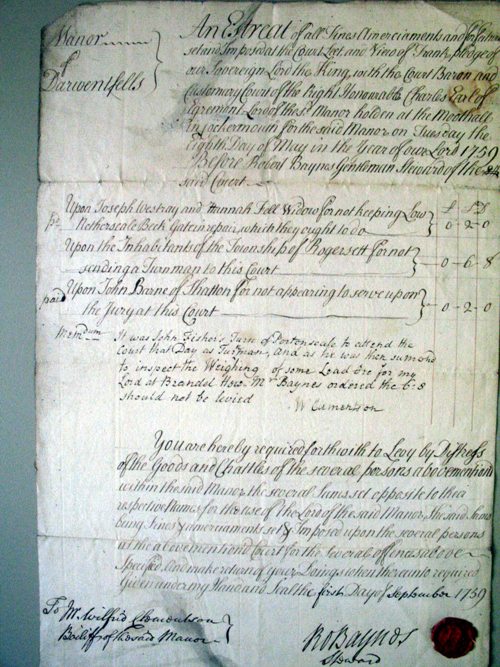 Manor
of
Darwentfells
An Estreat of all Fines Amerciaments and
set and Imposed at the Court Leet and View of Frank pledge of
our Sovereign Lord the King, with the Court Baron and
Customary Court of the Right Honourable Charles Earl of
Egremont Lord of the sd. Manor holden at the Moothall
in Cockermouth for the said Manor on Tuesday the
Eighth Day of May in the Year of our Lord 1759
Before Robert Baynes Gentleman Steward of the
said Court
£ S D
Upon Joseph Westray and Hannah Fell Widow for not keeping Low
Netherscale Beck Gate in repair which they ought to do 0 - 2 - 0
Upon the Inhabitants of the Township of Rogersett for not
sending a Turnman to this Court 0 - 6 - 8
paid Upon John Beane of Shatton for not appearing to serve upon
the Jury at this Court 0 - 2 - 0
Memdum It was John Fisher's Turn of Portenscale to attend the
Court that Day as Turnman, and as he was then sumond
to inspect the Weighing of some Lead Ore for my
Lord at Brandel How. Mr Baynes ordered the 6:8
should not be levied
W Eamerson
You are hereby required forthwith to Levy by Distress
of the Goods and Chattles of the several persons abovemention'd
within the said Manor, the several Sums set opposite to their
respective Names for the use of the Lord of the said Manor, the said Sums
being Fines & amerciaments set & Imposed upon the several persons
at the abovemention'd Court for the several offences above
Specified And make return of your Doings when thereunto required
Given under my Hand and Seal the first Day of September 1759
To Mr. Wilfrid Clementson
Bailiff of the said Manor
Ro Baynes
Steward